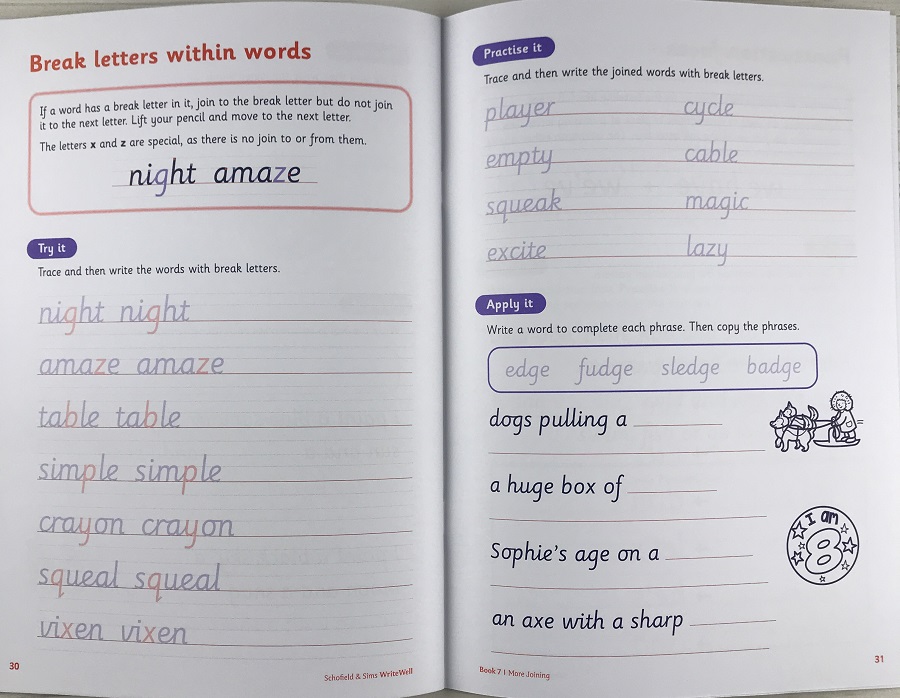 Break letters within words
If a word has a break letter in it, join to the break letter but do not join
it to the next letter. Lift your pencil and move to the next letter.
The letters x and z are special, as there is no join to or from them.
night amaze
Try it
Trace and then write the words with break letters.
night night
amaze amaze
table table
simple simple
crayon crayon
squeal squeal
vixen vixen
30
Schofield & Sims WriteWell
Practise it
Trace and then write the joined words with break letters.
player cycle
empty cable
squeak magic
excite lazy
Apply it
Write a word to complete each phrase. Then copy the phrases.
edge fudge sledge badge
dogs pulling a
a huge box of
I am
8
Sophie's age on a
an axe with a sharp
Book 7 | More Joining
31